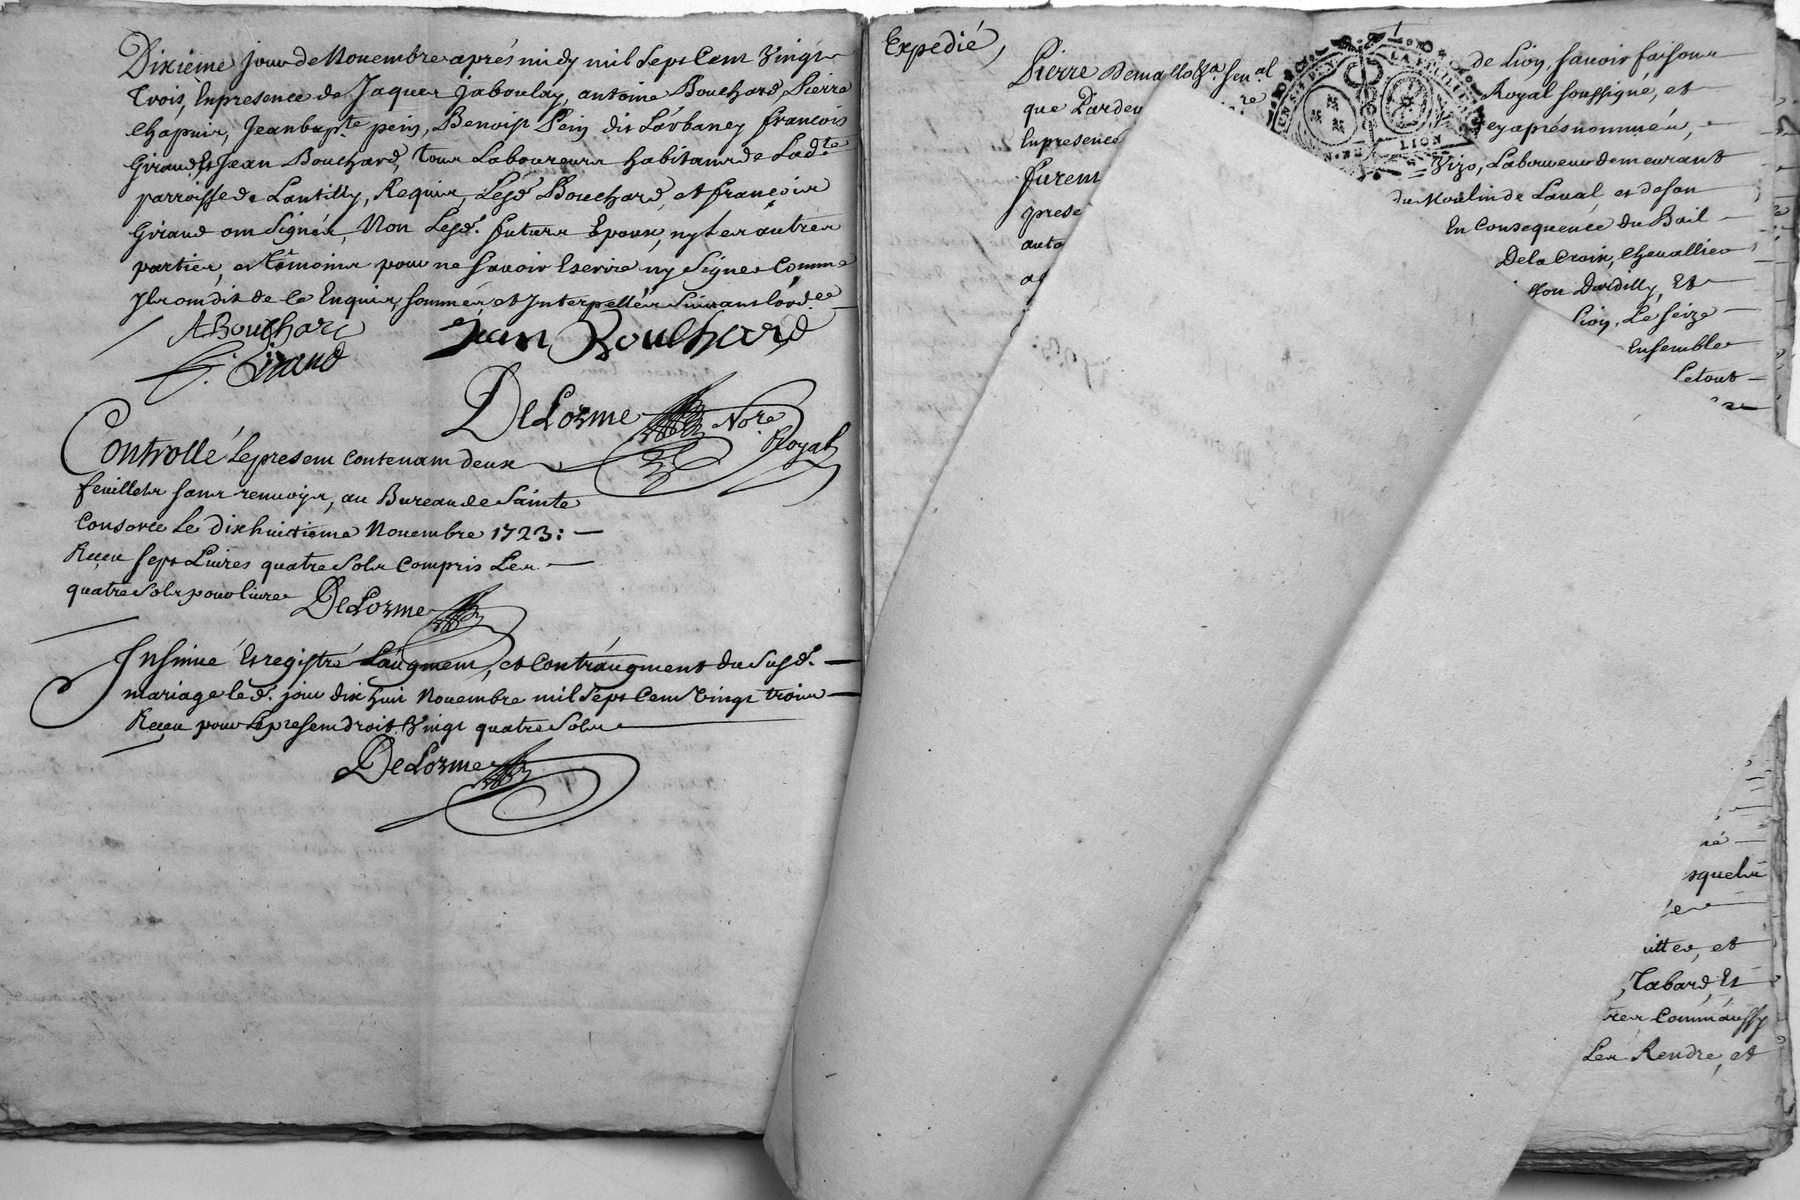 Dixieme jour de Novembre aprés midy mil Sept Cent Vingt
Trois, En presence de Jaques Jaboulay, antoine Bouchard, Pierre
Chapuis, Jean bapte pein, Benoist Pein dit Lorbaney francois
Giraud, Et Jean Bouchard, tous Laboureurs habitans de Ladte
parroisse de Lantilly, Requis, Lesd. Bouchard, et françois
Giraud ont Signéz, Non Lesd. futurs Epoux, ny Les autres
parties, et témoins pour ne Savoir Escrire ny Signer Comme
Ils ont dit de Ce Enquis, sommés et Interpellés Suivant l'ordce
ABouchard
Jean Bouchard
f. Giraud
DeLorme Nore Royal
Controllé Le present contenant deux
feuillets sans renvoys, au Bureau de Sainte
Consorce Le dixhuitieme Novembre 1723: —
Receu sept Livres quatre Sols Compris Les —
quatre Sols pour livre DeLorme
Insinué Et registré L'augment, et Contr'augment du Susd. —
mariage le d. jour dix huit Novembre mil Sept Cent Vingt trois —
Receu pour Le present droit Vingt quatre Sols
DeLorme
Expedié,
Pierre de Lion, savoir faisons
que Pardev Royal soussigné, et
En presence cy aprés nommés, —
furent Vizo, Laboureur demeurant
prese du Moulin de Laval, et de son
auto En Consequence du Bail —
De la Croix, Chevallier
Dardilly, Et
Lion, Le Seize —
Ensemble
Le tout —
LION
squels
itter, et
Tabard, Et
Comm'aussy
Les Rendre, et